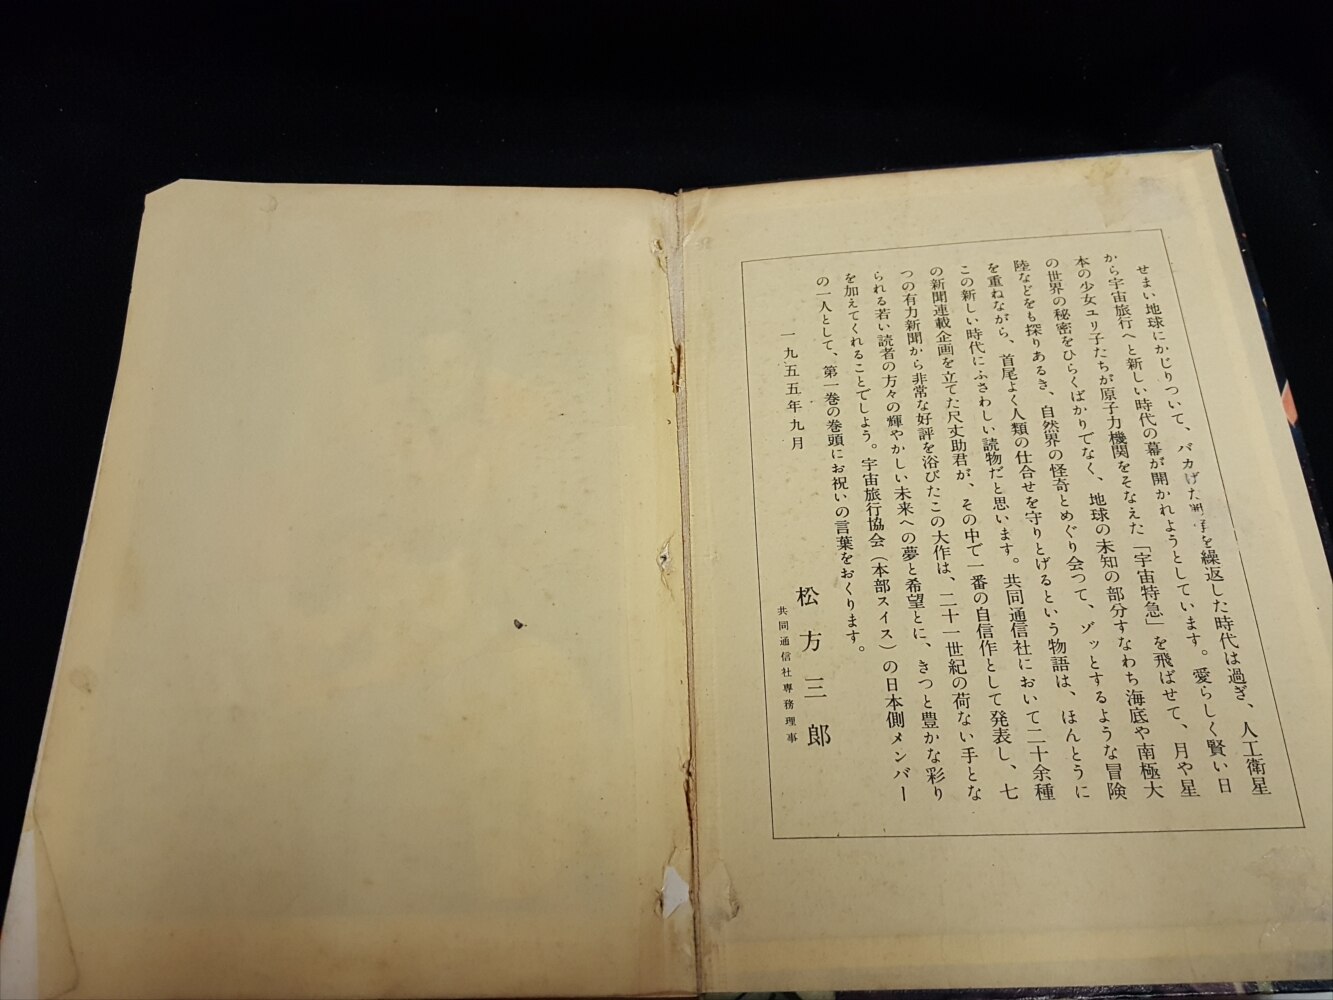 せまい地球にかじりついて、バカげた戦争を繰返した時代は過ぎ、人工衛星
から宇宙旅行へと新しい時代の幕が開かれようとしています。愛らしく賢い日
本の少女ユリ子たちが原子力機関をそなえた「宇宙特急」を飛ばせて、月や星
の世界の秘密をひらくばかりでなく、地球の未知の部分すなわち海底や南極大
陸などをも探りあるき、自然界の怪奇とめぐり会つて、ゾッとするような冒険
を重ねながら、首尾よく人類の仕合せを守りとげるという物語は、ほんとうに
この新しい時代にふさわしい読物だと思います。共同通信社において二十余種
の新聞連載企画を立てた尺丈助君が、その中で一番の自信作として発表し、七
つの有力新聞から非常な好評を浴びたこの大作は、二十一世紀の荷ない手とな
られる若い読者の方々の輝やかしい未来への夢と希望とに、きつと豊かな彩り
を加えてくれることでしよう。宇宙旅行協会（本部スイス）の日本側メンバー
の一人として、第一巻の巻頭にお祝いの言葉をおくります。
一九五五年九月
松方三郎
共同通信社専務理事